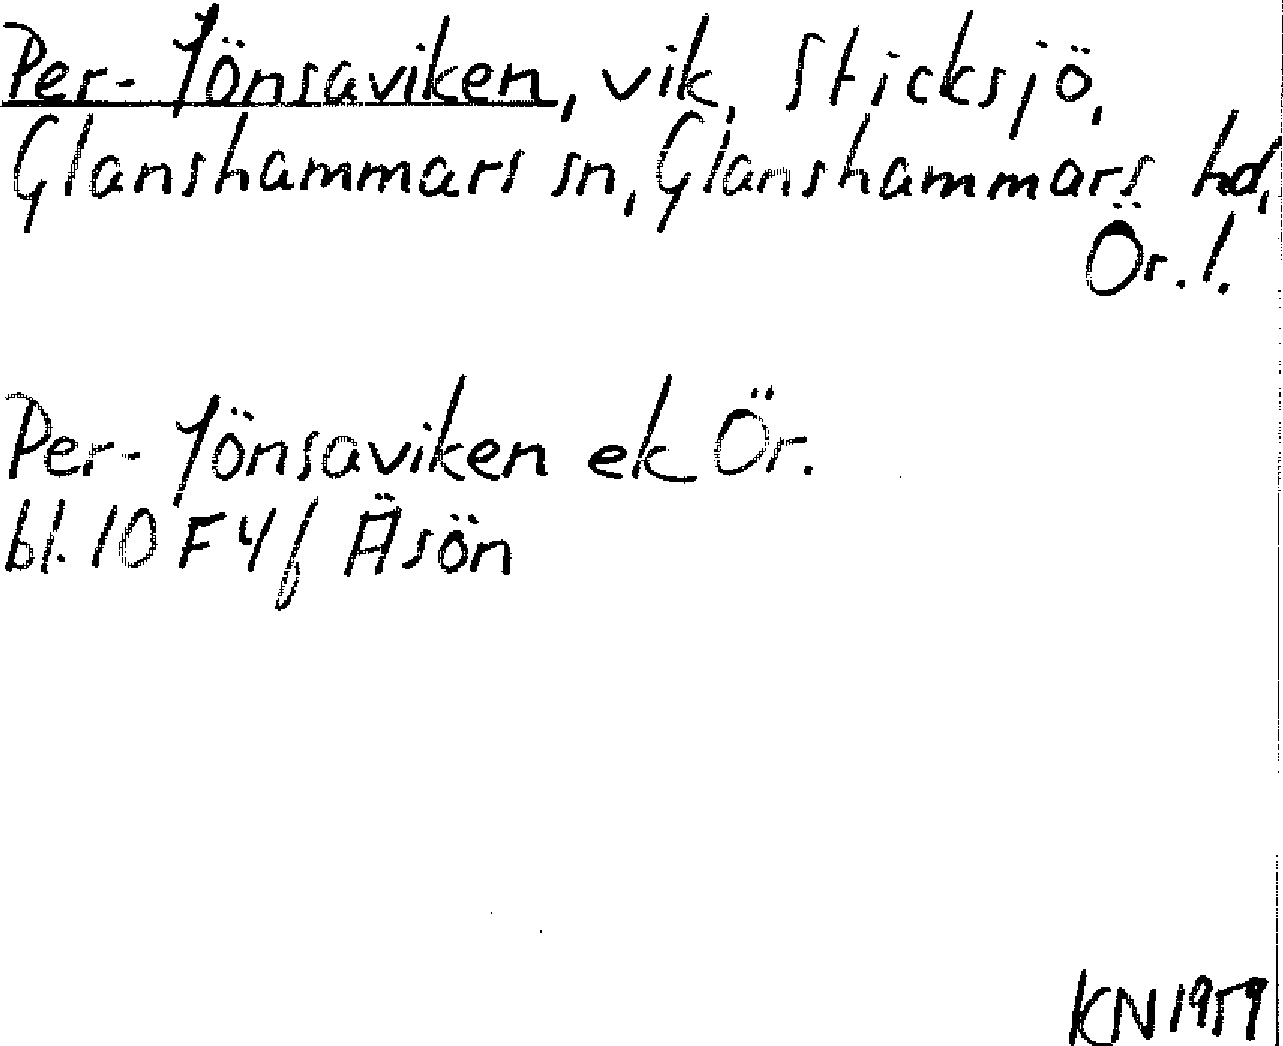 Per-Jönsaviken, vik, Sticksjö,
Glanshammars sn, Glanshammars hd,
Ör. l.
Per-Jönsaviken ek Ör.
bl. 10 F 4 f Äsön
KN 1959